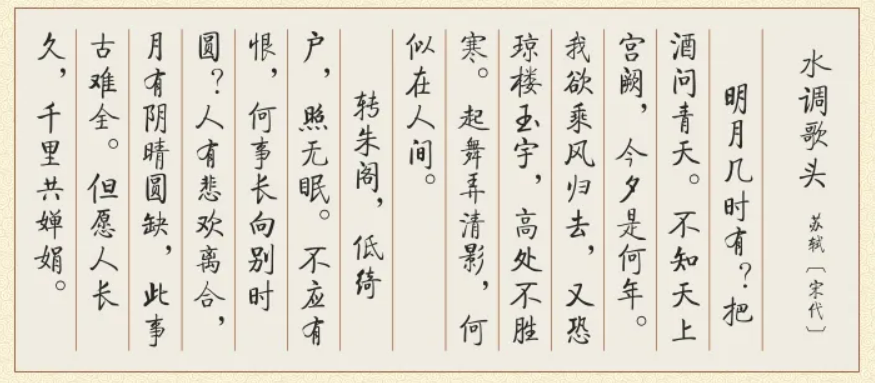 水调歌头 苏轼〔宋代〕
明月几时有？把
酒问青天。不知天上
宫阙，今夕是何年。
我欲乘风归去，又恐
琼楼玉宇，高处不胜
寒。起舞弄清影，何
似在人间。
转朱阁，低绮
户，照无眠。不应有
恨，何事长向别时
圆？人有悲欢离合，
月有阴晴圆缺，此事
古难全。但愿人长
久，千里共婵娟。